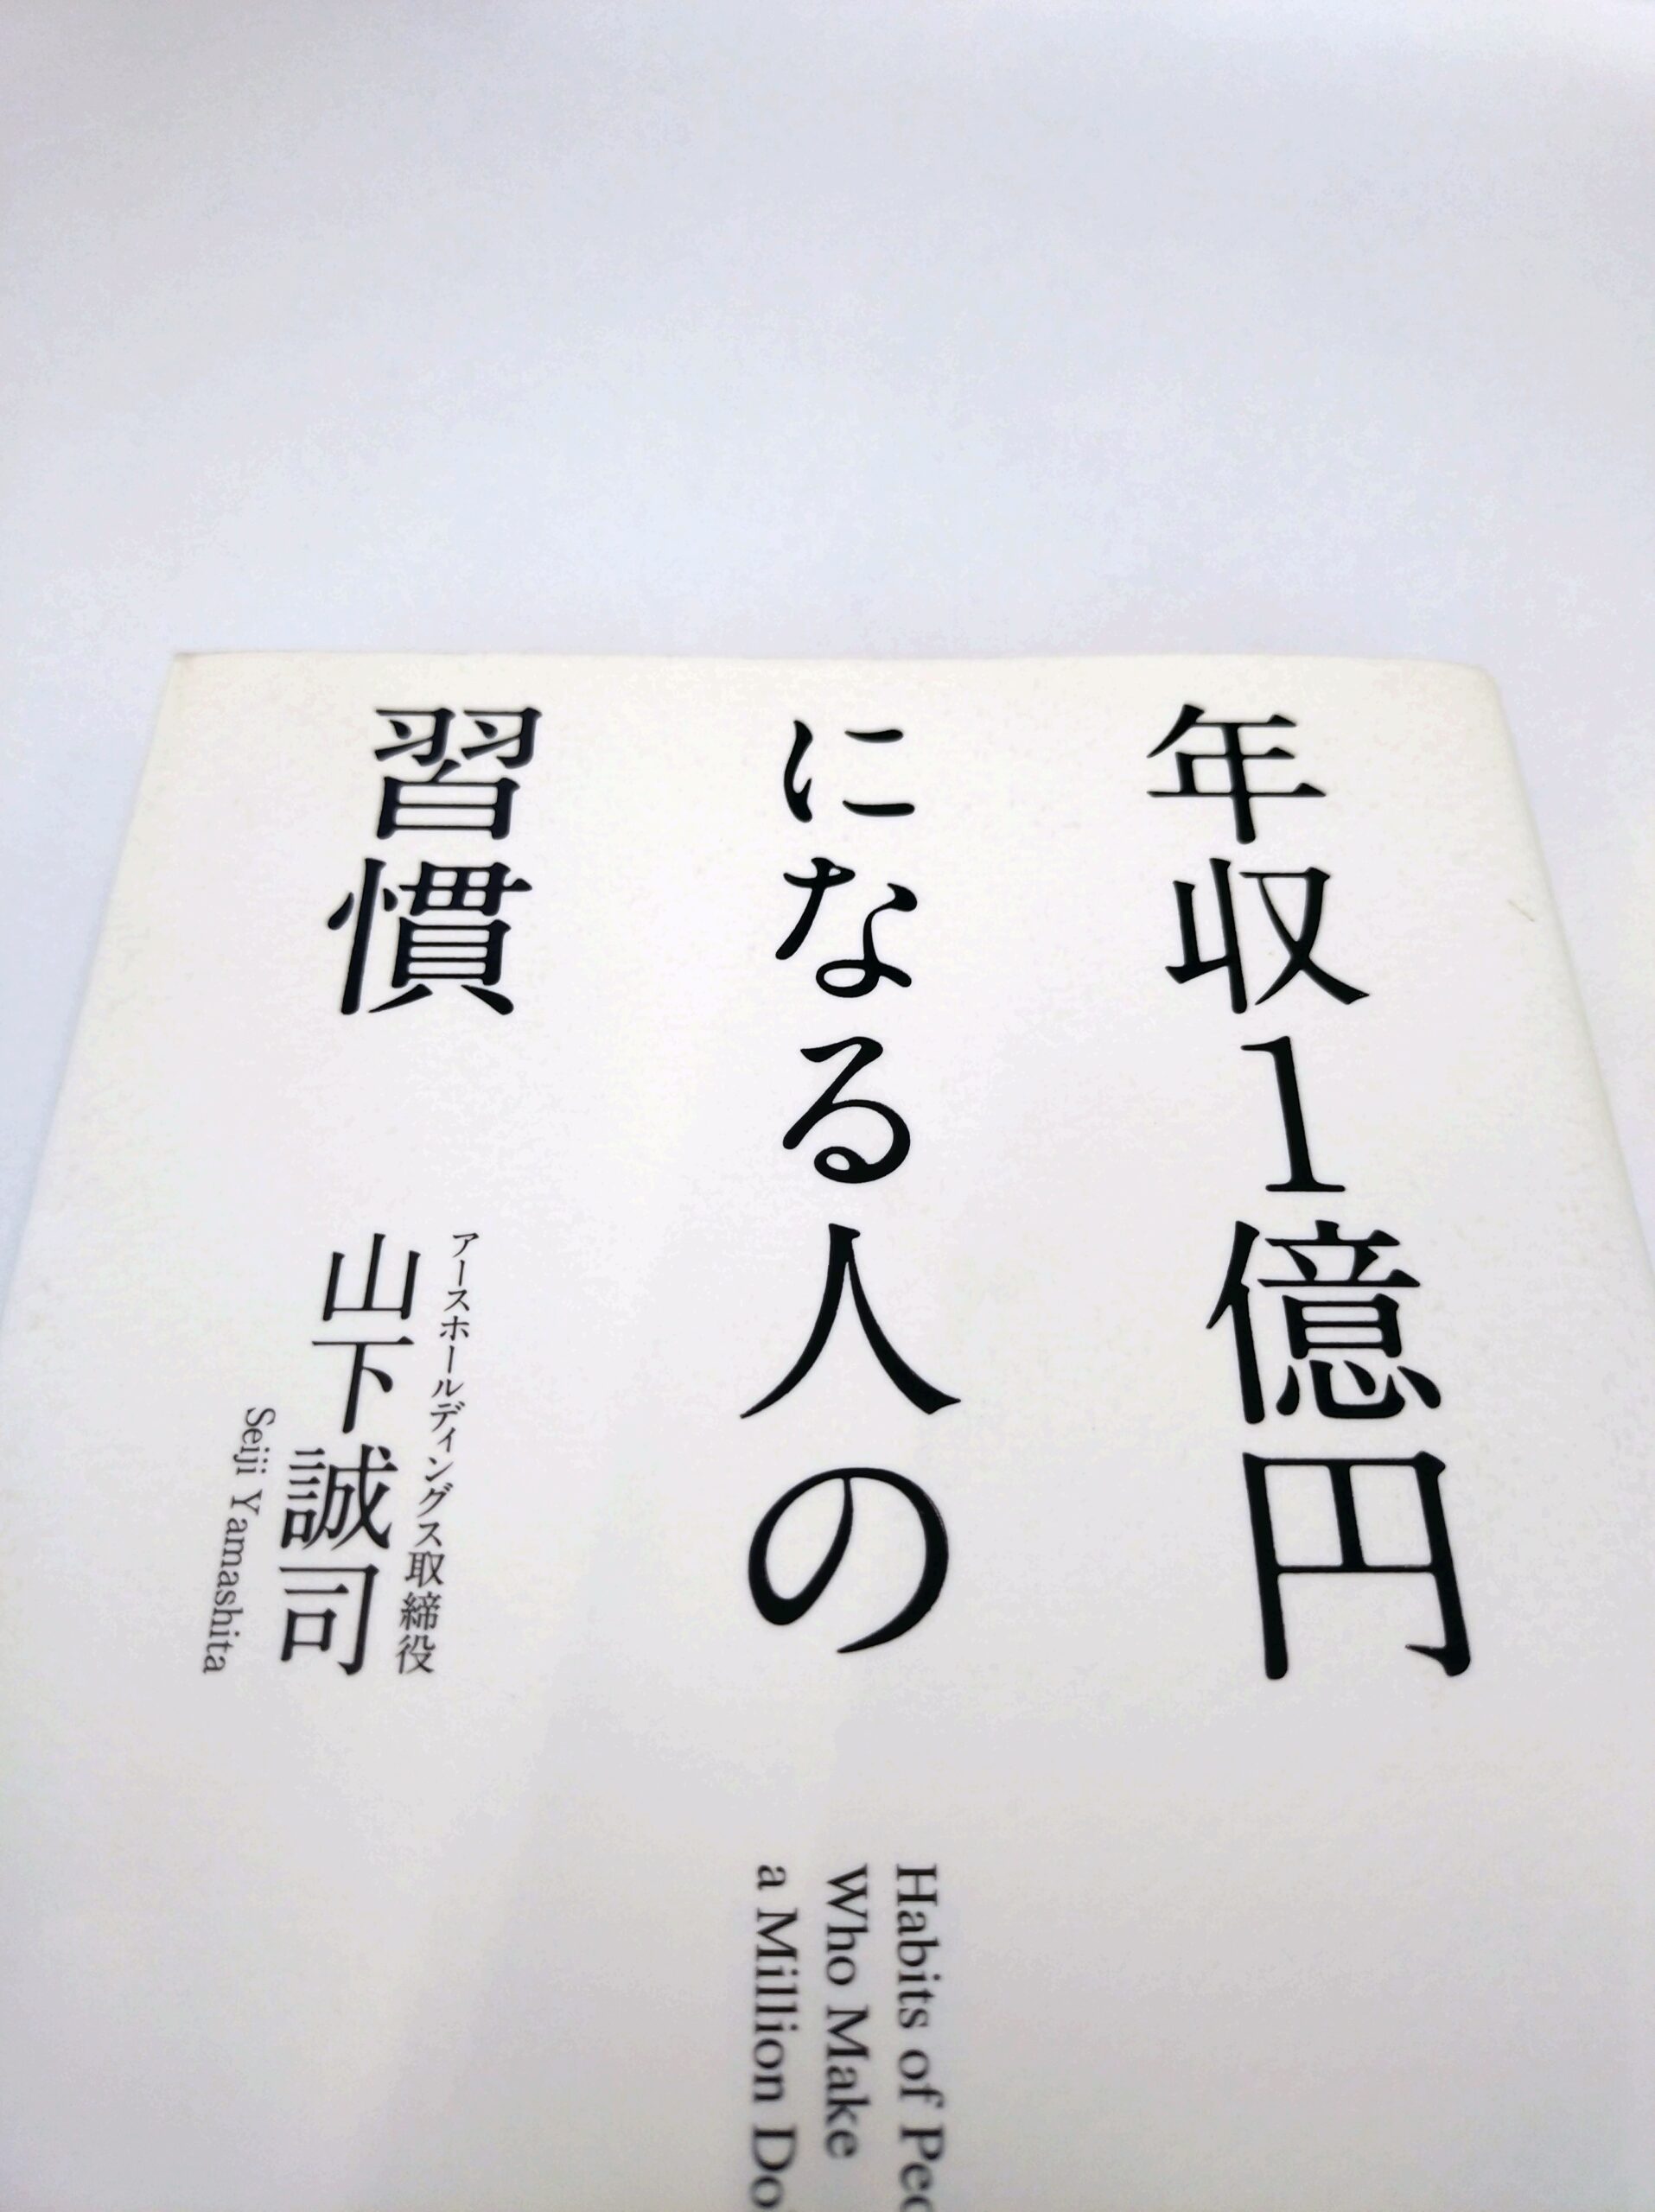 年収1億円
になる人の
習慣
アースホールディングス取締役
山下誠司
Seiji Yamashita
Habits of
Who Make
a Million